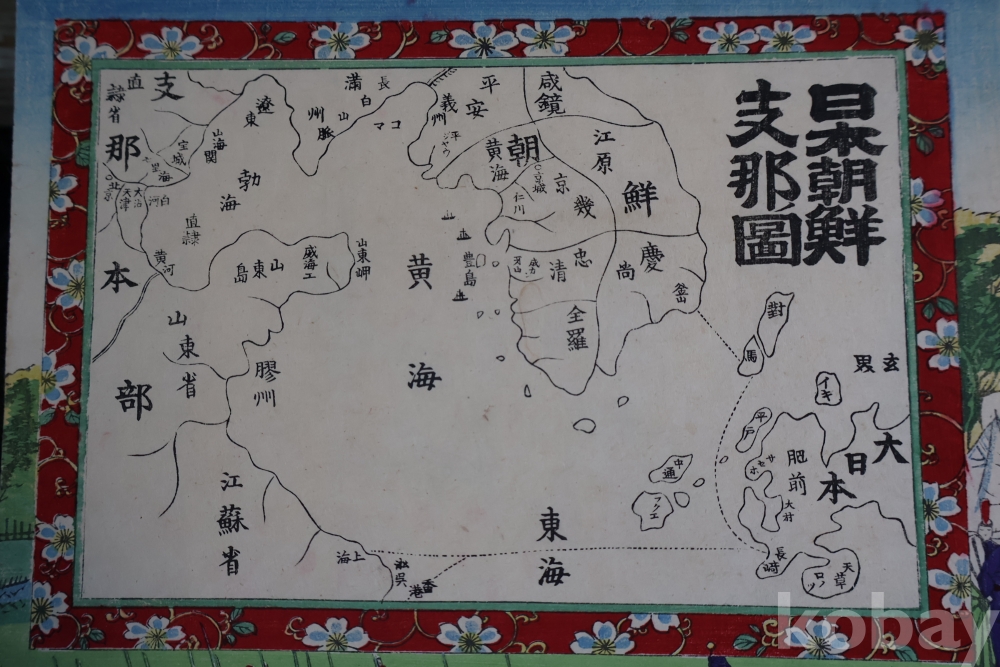 日本朝鮮
支那圖
支那本部
直隷省
遼東
満州
長白山脈
コマ
義州
平安
咸鏡
江原
朝鮮
黄海
京城
京畿
仁川
忠清
牙山
全羅
慶尚
釜山
豊島
山海関
勃海
直隷
北京
天津
大沽
白河
黄河
山東島
威海エ
山東岬
山東省
膠州
黄海
江蘇省
上海
香港
東海
對馬
イキ
玄界
大日本
平戸
サセホ
肥前
大村
長崎
天草
中通
kobay